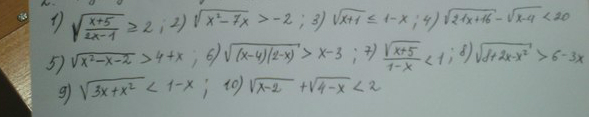 1) √((x+5)/(2x-1)) ≥ 2 ; 2) √(x²-7x) > -2 ; 3) √(x+1) ≤ 1-x ; 4) √(21x+16) - √(x-4) < 20
5) √(x²-x-2) > 4+x ; 6) √((x-4)(2-x)) > x-3 ; 7) √(x+5)/(1-x) < 1 ; 8) √(8+2x-x²) > 6-3x
9) √(3x+x²) < 1-x ; 10) √(x-2) + √(4-x) < 2